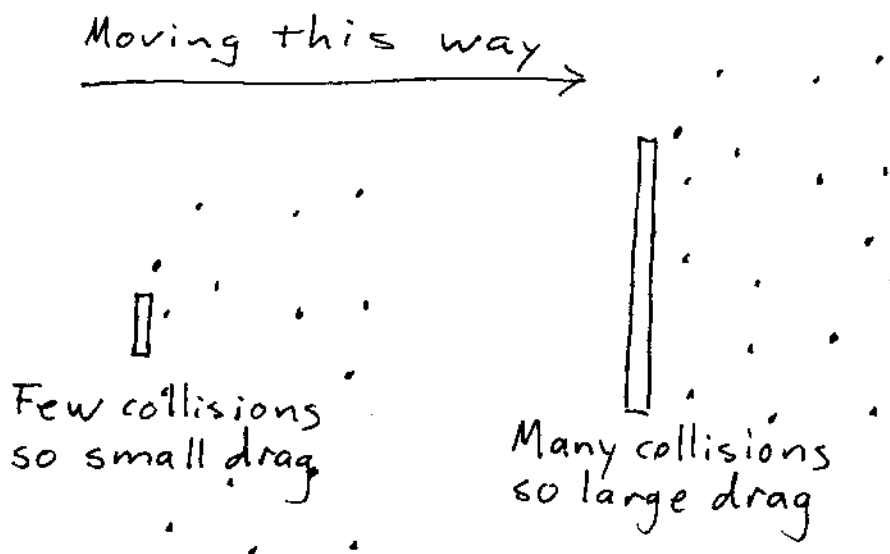 Moving this way
Few collisions
so small drag
Many collisions
so large drag